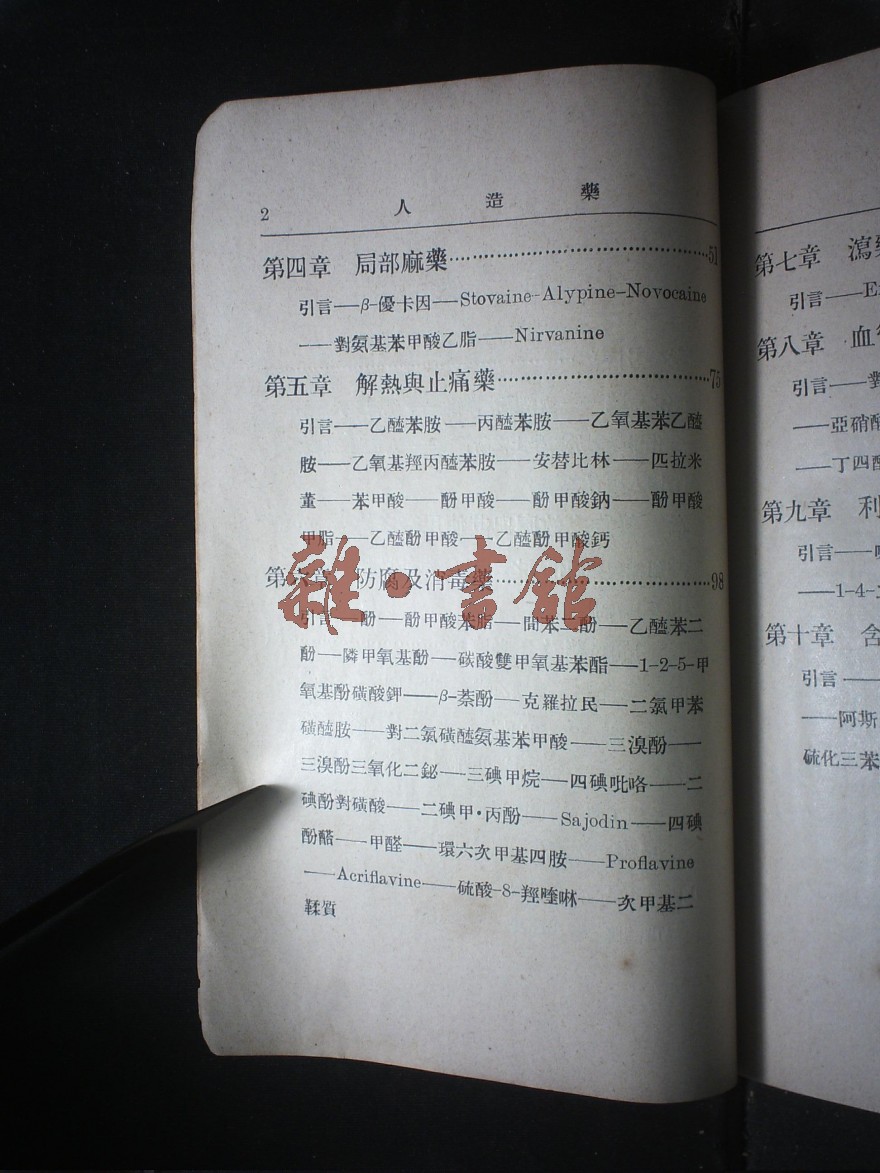 2 人造藥
第四章 局部麻藥……51
引言——β-優卡因——Stovaine-Alypine-Novocaine
——對氨基苯甲酸乙脂——Nirvanine
第五章 解熱與止痛藥……75
引言——乙醯苯胺——丙醯苯胺——乙氧基苯乙醯
胺——乙氧基羥丙醯苯胺——安替比林——匹拉米
董——苯甲酸——酚甲酸——酚甲酸鈉——酚甲酸
甲脂——乙醯酚甲酸——乙醯酚甲酸鈣
第六章 防腐及消毒藥……98
引言——酚——酚甲酸苯脂——間苯二酚——乙醯苯二
酚—隣甲氧基酚—碳酸雙甲氧基苯酯—1-2-5-甲
氧基酚磺酸鉀——β-萘酚—克羅拉民——二氯甲苯
磺醯胺——對二氯磺醯氨基苯甲酸——三溴酚——
三溴酚三氧化二鉍——三碘甲烷——四碘吡咯——二
碘酚對磺酸——二碘甲·丙酚——Sajodin——四碘
酚醛——甲醛——環六次甲基四胺——Proflavine
——Acriflavine——硫酸-8-羥喹啉——次甲基二
鞣質
雜·書館
第七章 瀉藥
引言——E
第八章 血
引言——對
——亞硝酸
——丁四醇
第九章 利
引言——
——1-4-
第十章 含
引言——
——阿斯
硫化三苯